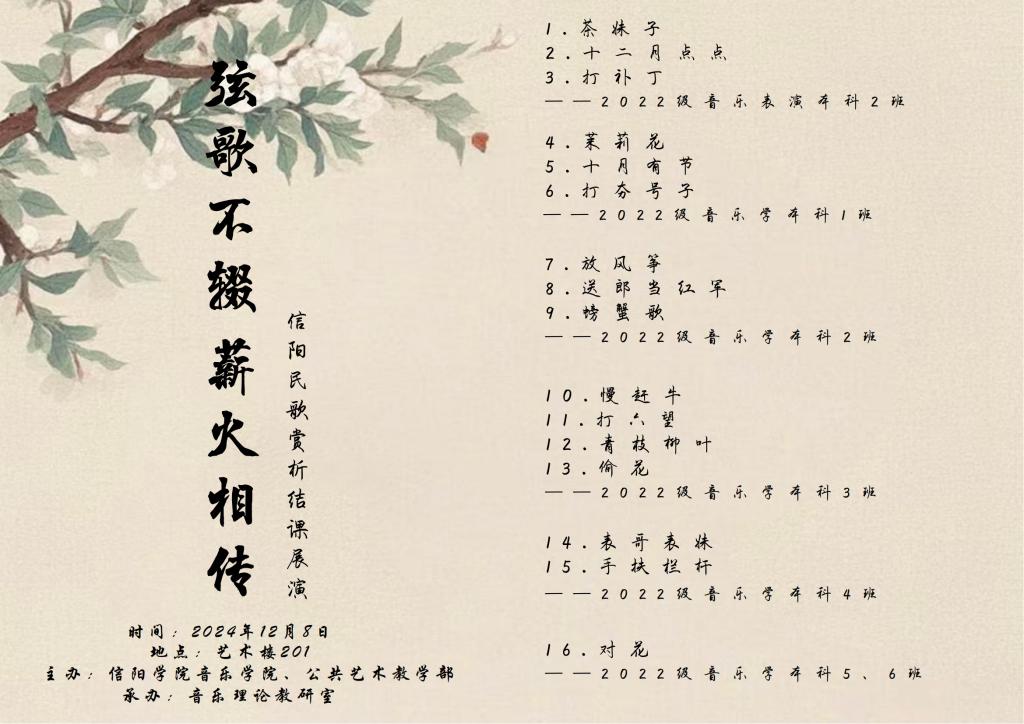 弦歌不辍薪火相传
信阳民歌赏析结课展演
时间：2024年12月8日
地点：艺术楼201
主办：信阳学院音乐学院、公共艺术教学部
承办：音乐理论教研室
1.茶妹子
2.十二月点点
3.打补丁
——2022级音乐表演本科2班
4.茉莉花
5.十月有节
6.打夯号子
——2022级音乐学本科1班
7.放风筝
8.送郎当红军
9.螃蟹歌
——2022级音乐学本科2班
10.慢赶牛
11.打六望
12.青枝柳叶
13.偷花
——2022级音乐学本科3班
14.表哥表妹
15.手扶栏杆
——2022级音乐学本科4班
16.对花
——2022级音乐学本科5、6班